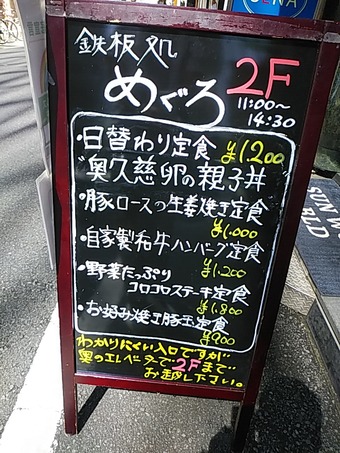 鉄板処
めぐろ 2F
11:00〜
14:30
・日替わり定食 ¥1,200
"奥久慈卵の親子丼"
・豚ロースの生姜焼き定食
¥1,000
・自家製和牛ハンバーグ定食
¥1,200
・野菜たっぷり
コロコロステーキ定食
¥1,800
・お好み焼き豚玉定食
¥900
わかりにくい入口ですが
奥のエレベーターで2Fまで…
お越し下さい。
SUN WO
RLD